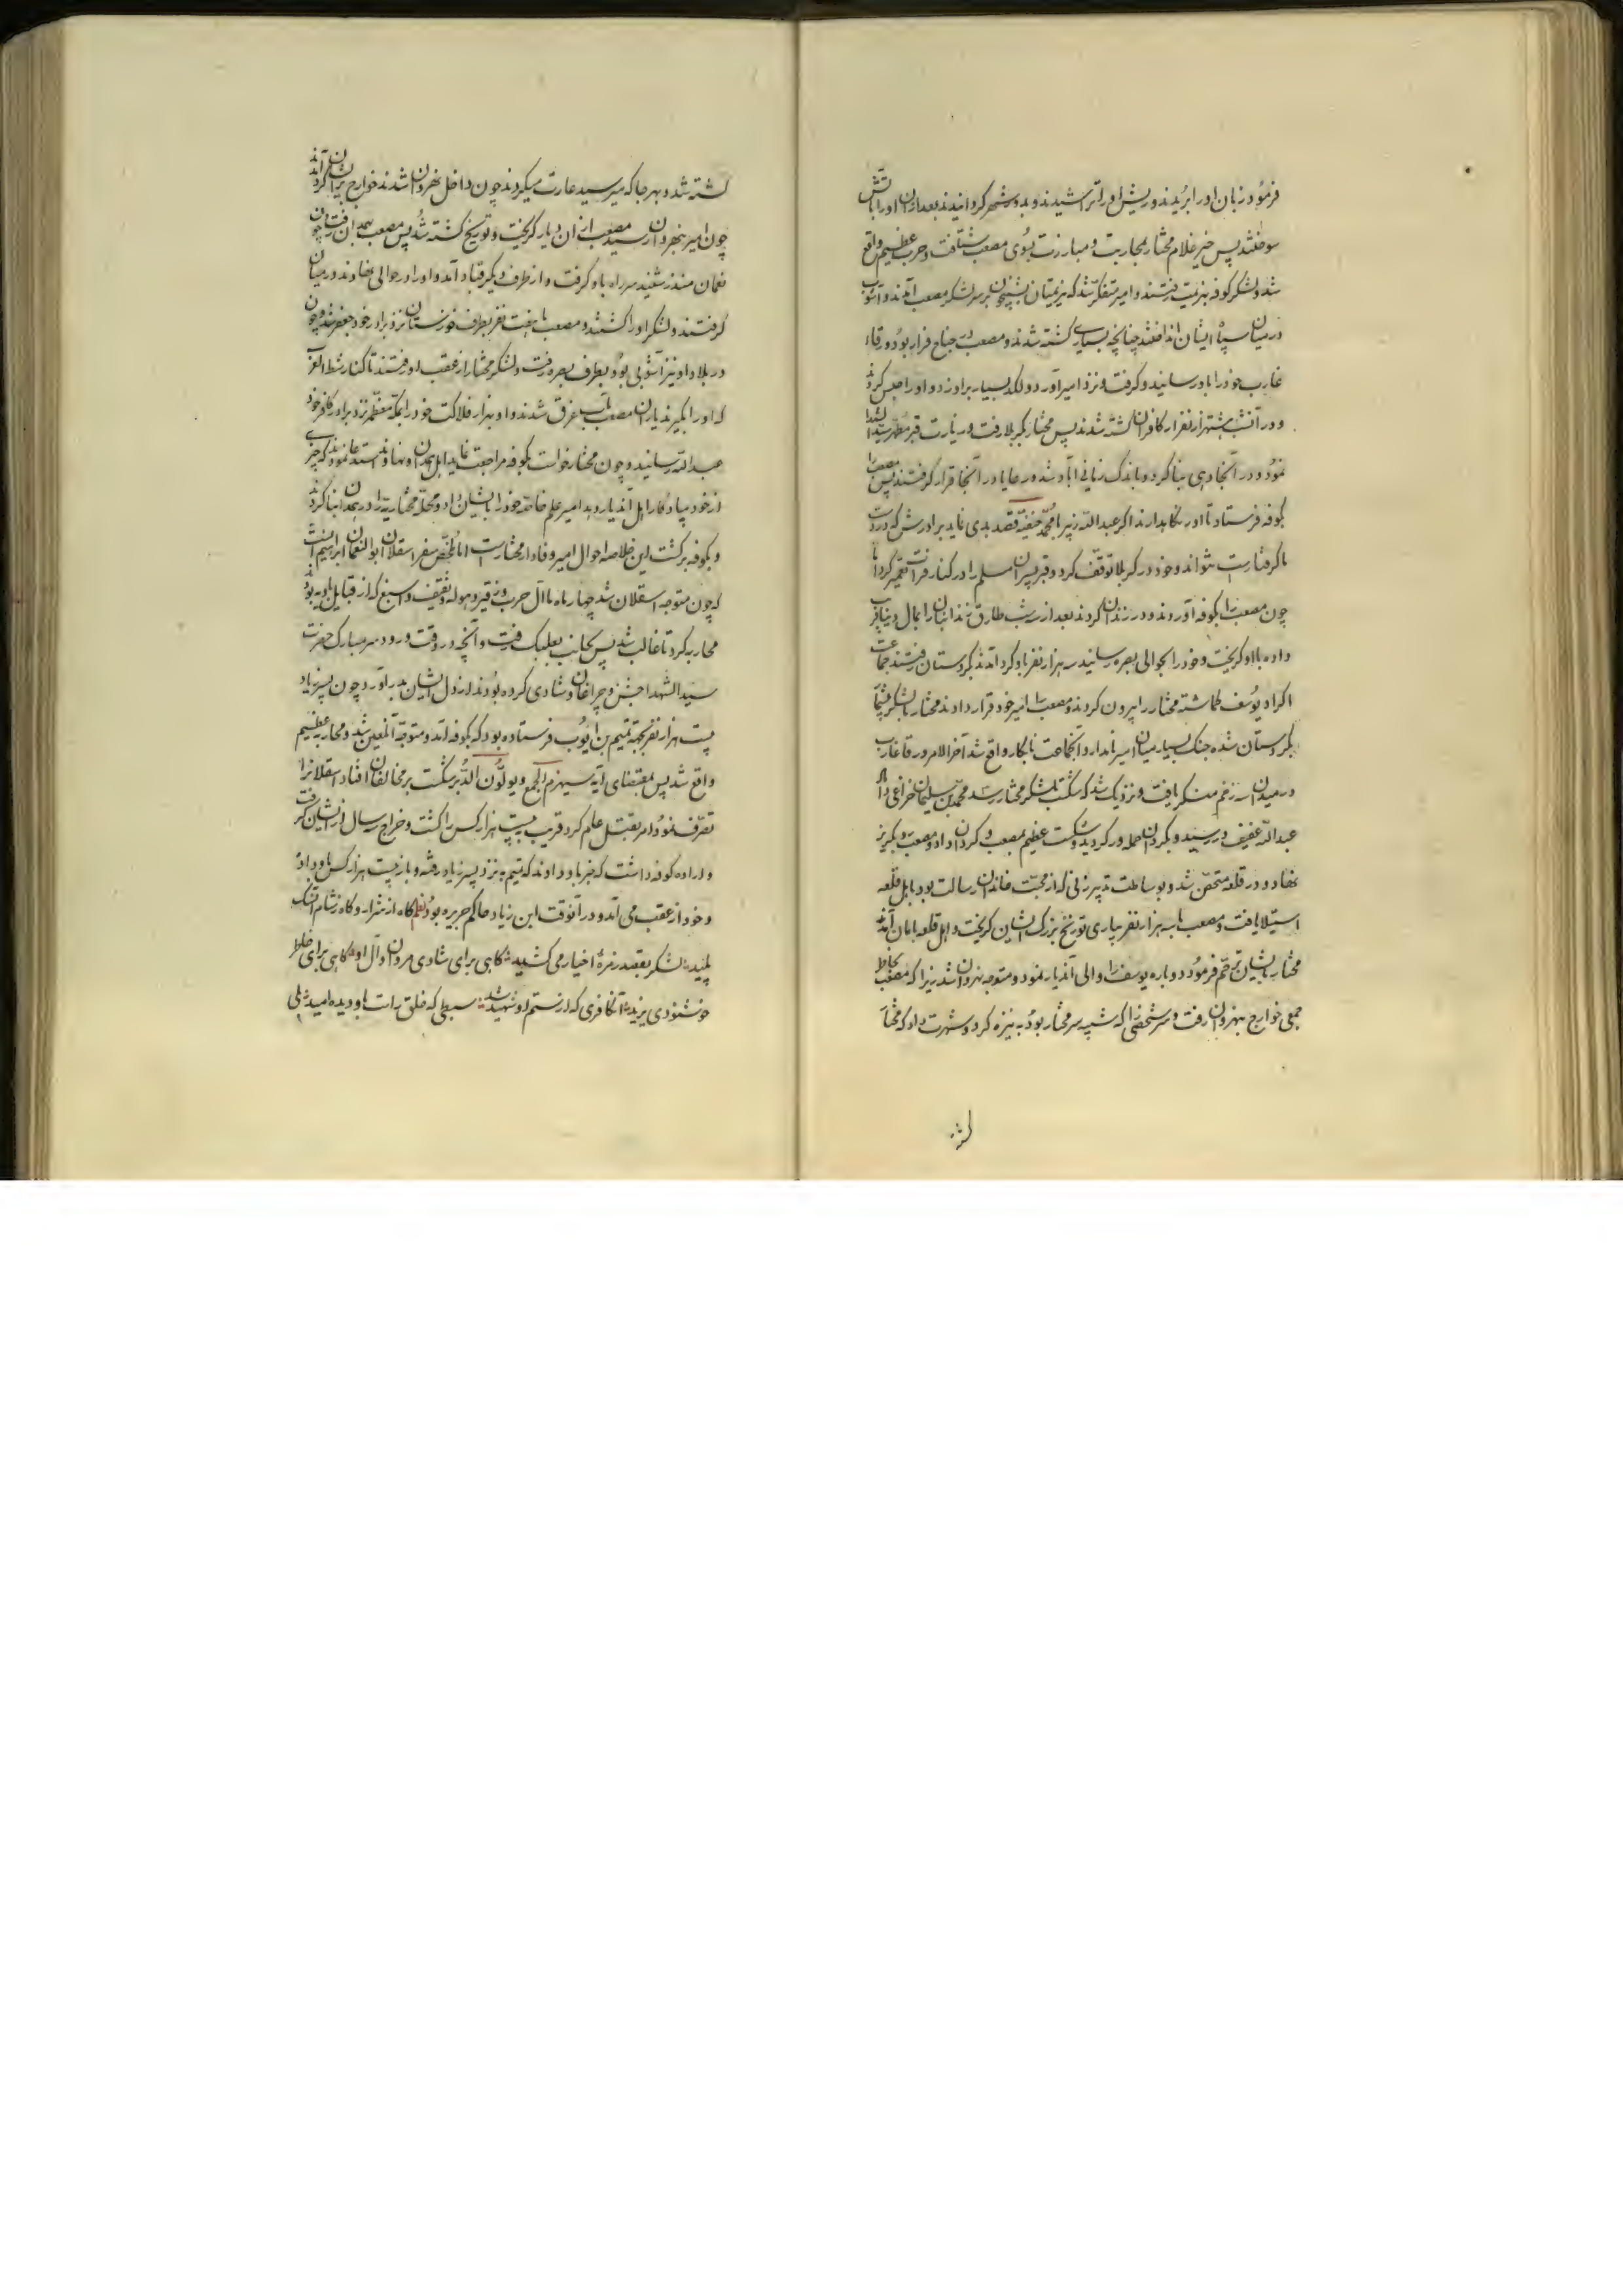 فرمود زبان او را بریدند و ریش او را تراشیدند و بدور شهر کردانیدند بعد از آن او را باتش
سوختند پس خیر غلام مختار بمحاربت و مبارزت بسوی مصعب شتافت و حرب عظیم واقع
شد و لشکر کوفه بهزیمت رفتند و امیر متفکر شد که بر سر لشکر مصعب آمدند و آشوب
در میان سپاه ایشان انداختند چنانچه بسیاری کشته شدند و مصعب در جناح فرار بود ورقاء
غارب خود را باو رسانید و کرفت و نزد امیر آورد و لکد بسیار بر او زد و او را حبس کردند
و در آنشب هشتهزار نفر از کافران کشته شدند پس مختار بکربلا رفت و زیارت قبر مطهر سید الشهدا
نمود و در آنجا دهی بنا کرد و باندک زمانی آباد شده رعایا در آنجا قرار کرفتند پس مصعب را
بکوفه فرستاد تا او را نکاه دارند اکر عبد الله زبیر با محمد حنفیه قصد بدی نماید برادرش که در دست
ما کرفتار است بتواند و خود در کربلا توقف کرد و قبر پسران مسلم را در کنار فرات تعمیر کرد اما
چون مصعب را بکوفه آوردند و در زندان کردند بعد از سه شب طارق زندانبان را بمال دنیا فریب
داده با او کریخت و خود را بحوالی بصره رسانید سه هزار نفر باو کرد آمدند بکردستان رفتند جماعت
اکراد یوسف کماشته مختار را بیرون کردند و مصعب را امیر خود قرار دادند مختار با لشکر
بکردستان شده جنک بسیار میان امیر نامدار و آنجماعت نابکار واقع شد آخر الامر ورقا غارب
در میدان سه زخم منکر یافت و نزدیک شد که شکست بلشکر مختار رسد محمد بن سلیمان خزاعی و
عبد الله عفیف در رسیدند و بکردان حمله ور کردید و شکست عظیم بمصعب و کردان داد و مصعب رو بکریز
نهاد و در قلعه متحصن شد و بوساطت پیرزنی که از محبت خاندان رسالت بود بابل قلعه
استیلا یافت و مصعب با سه هزار نفر بیاری تورنج بزرک ایشان کریخت و اهل قلعه بامان آمدند
مختار بایشان ترحم فرمود و دوباره یوسف را والی آندیار نمود و متوجه نهروان شد زیرا که مصعب بخاطر
جمعی خوارج بنهروان رفت و سر شخصی را که شبیه سر مختار بود به نیزه کرد و شهرت داد که مختار
کشته
کشته شد و بهر جا که میرسید غارت میکردند چون داخل نهروان شدند خوارج بر ایشان کرد آمدند
چون امیر بنهروان رسید مصعب از ان دیار کریخت و تورنج کشته شد پس مصعب بهمدان رفت چون
نعمان منذر شنید سر راه باو کرفت و از طرف دیکر قباد آمد و او را در حوالی نهاوند در میان
کرفتند و لشکر او را کشتند و مصعب با هفت نفر بطرف خوزستان نزد برادر خود جعفر شد و چون
در بلاد او نیز آشوبی بود بطرف بصره رفت و لشکر مختار از عقب او رفتند تا کنار شط العرب
که او را بکیرند یاران مصعب بآب غرق شدند و او بهزار فلاکت خود را بمکه معظمه نزد برادر کافر خود
عبد الله رسانید و چون مختار خواست بکوفه مراجعت نماید اهل همدان و نهاوند استدعا نمودند که چیزی
از خود بیادکار باهل آندیار دهد امیر علم خاصه خود را بایشان داد و محله مختاریه را در همدان بنا کردند
و بکوفه برکشت این خلاصه احوال امیر وفادار مختار است اما ملخص سفر اسقلان ابو النعمان ابراهیم آنست
که چون متوجه اسقلان شد چهار ماه با آل حرب و و ثقیف و که از قبایل بودند
محاربه کرد تا غالب شد پس بجانب بعلبک رفت و آنچه در وقت ورود سر مبارک حضرت
سید الشهدا جشن و چراغان و شادی کرده بودند از دل ایشان بدر آورد و چون پسر زیاد
بیست هزار نفر بجهة تمیم بن ایوب فرستاده بود که بکوفه آمد و متوجه آنلعین شد و محاربه عظیم
واقع شد پس بمقتضای آیه سیهزم الجمع و یولون الدبر شکست بر مخالفان افتاد اسقلانرا
تصرف نمود امر بقتل عام کرد قریب بیست هزار کس را کشت و خراج سه سال از ایشان کرفت
و اراده کوفه داشت که خبر باو دادند که تمیم به نزد پسر زیاد رفته و باز بیست هزار کس باو داد
و خود از عقب می آمد و در آنوقت ابن زیاد حاکم جزیره بود نظم کاه از شرار و کاه ز شام آنسک
پلید لشکر بقصد زمره اخیار می کشید کاهی برای شادی مروان و آل او کاهی برای خاطر
خوشنودی یزید آن کافری که از ستم او شهید شد سبطی که خلق راست باو دیده امید بلی